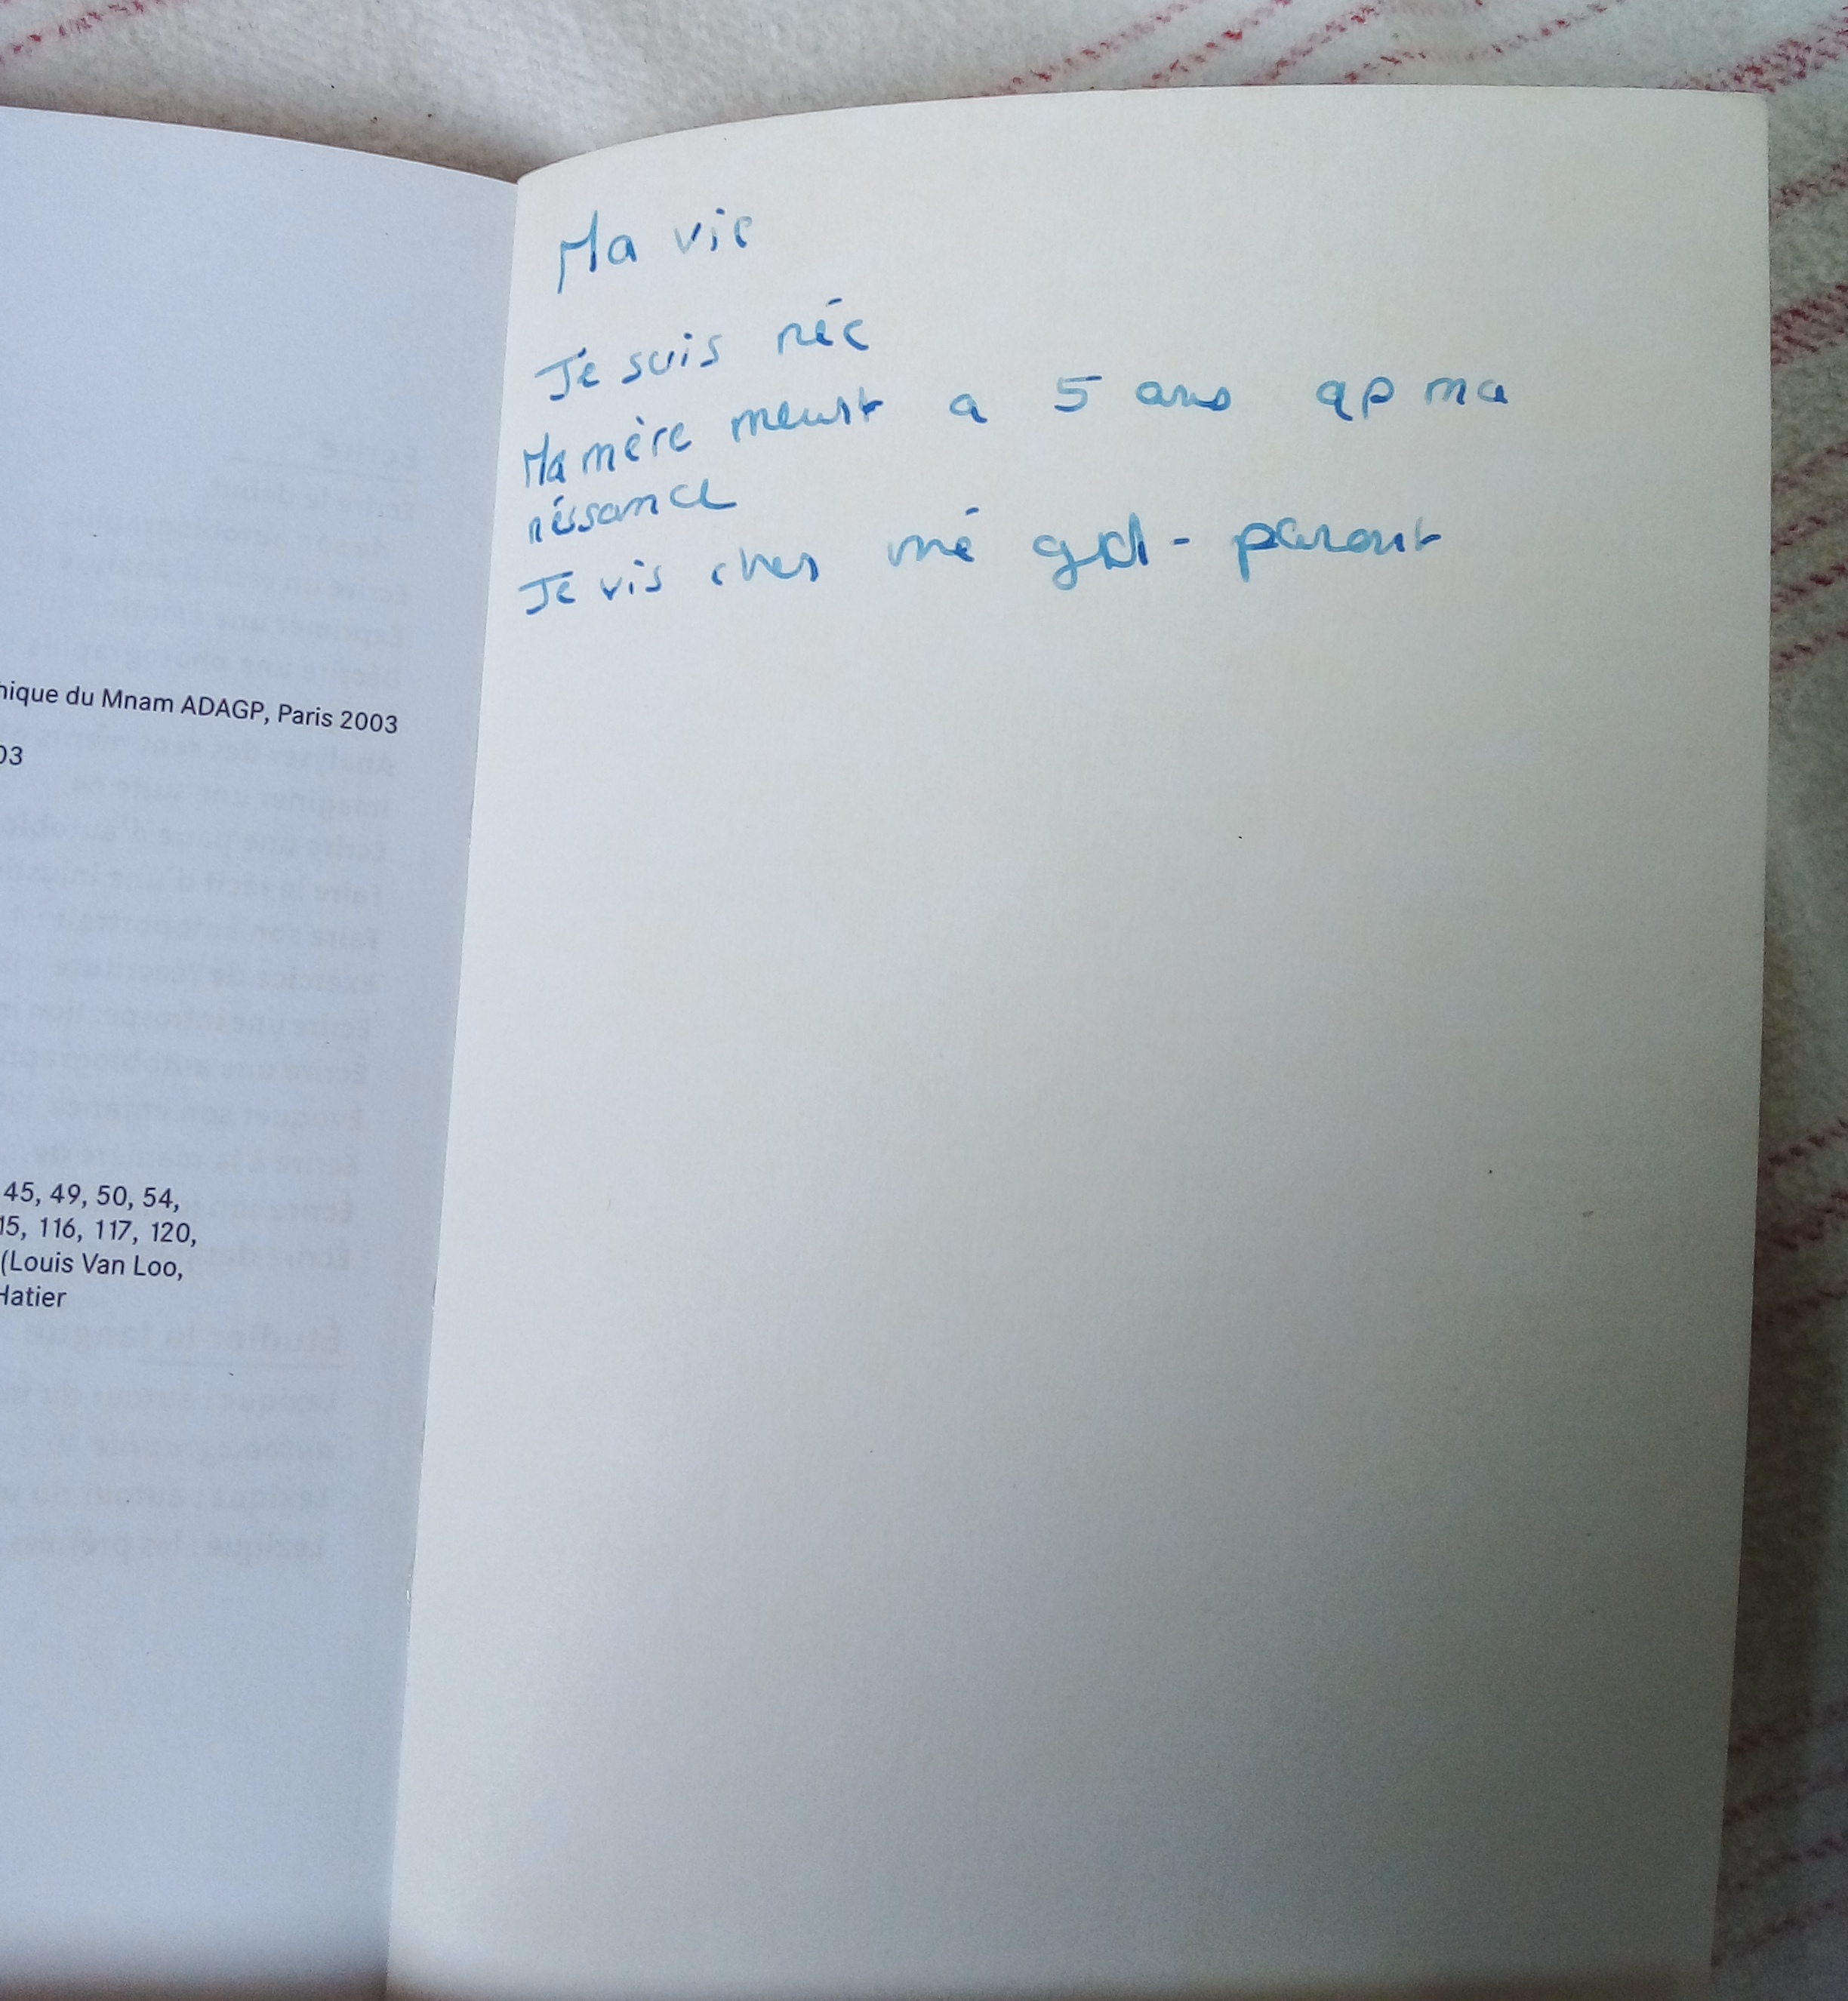 Ma vie
Je suis née
Ma mère meurt a 5 ans ap ma
néssance
Je vis chez mé grd - parent
hique du Mnam ADAGP, Paris 2003
03
45, 49, 50, 54,
15, 116, 117, 120,
(Louis Van Loo,
Hatier